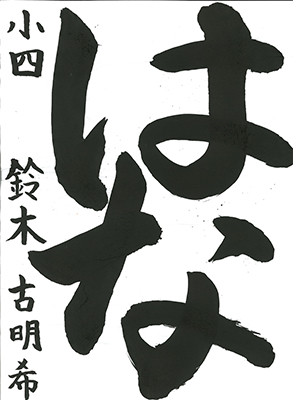 はな
小四 鈴木古明希